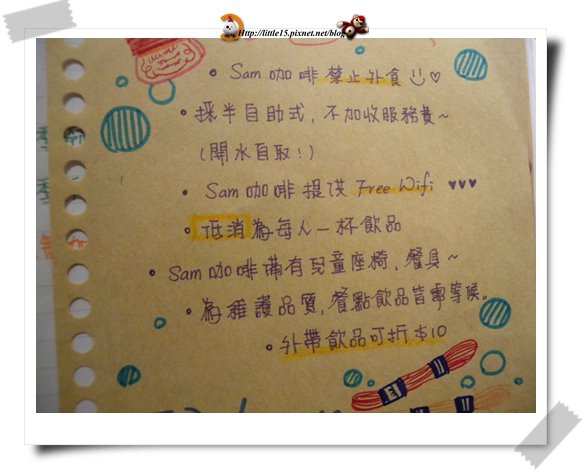 Http://little15.pixnet.net/blog
• Sam 咖啡 禁止外食
• 採半自助式，不加收服務費~
(開水自取！)
• Sam 咖啡 提供 Free Wifi ♥♥♥
• 低消為每人一杯飲品
• Sam 咖啡 備有兒童座椅，餐具~
• 為維護品質，餐點飲品皆需等候。
• 外帶飲品可折 $10